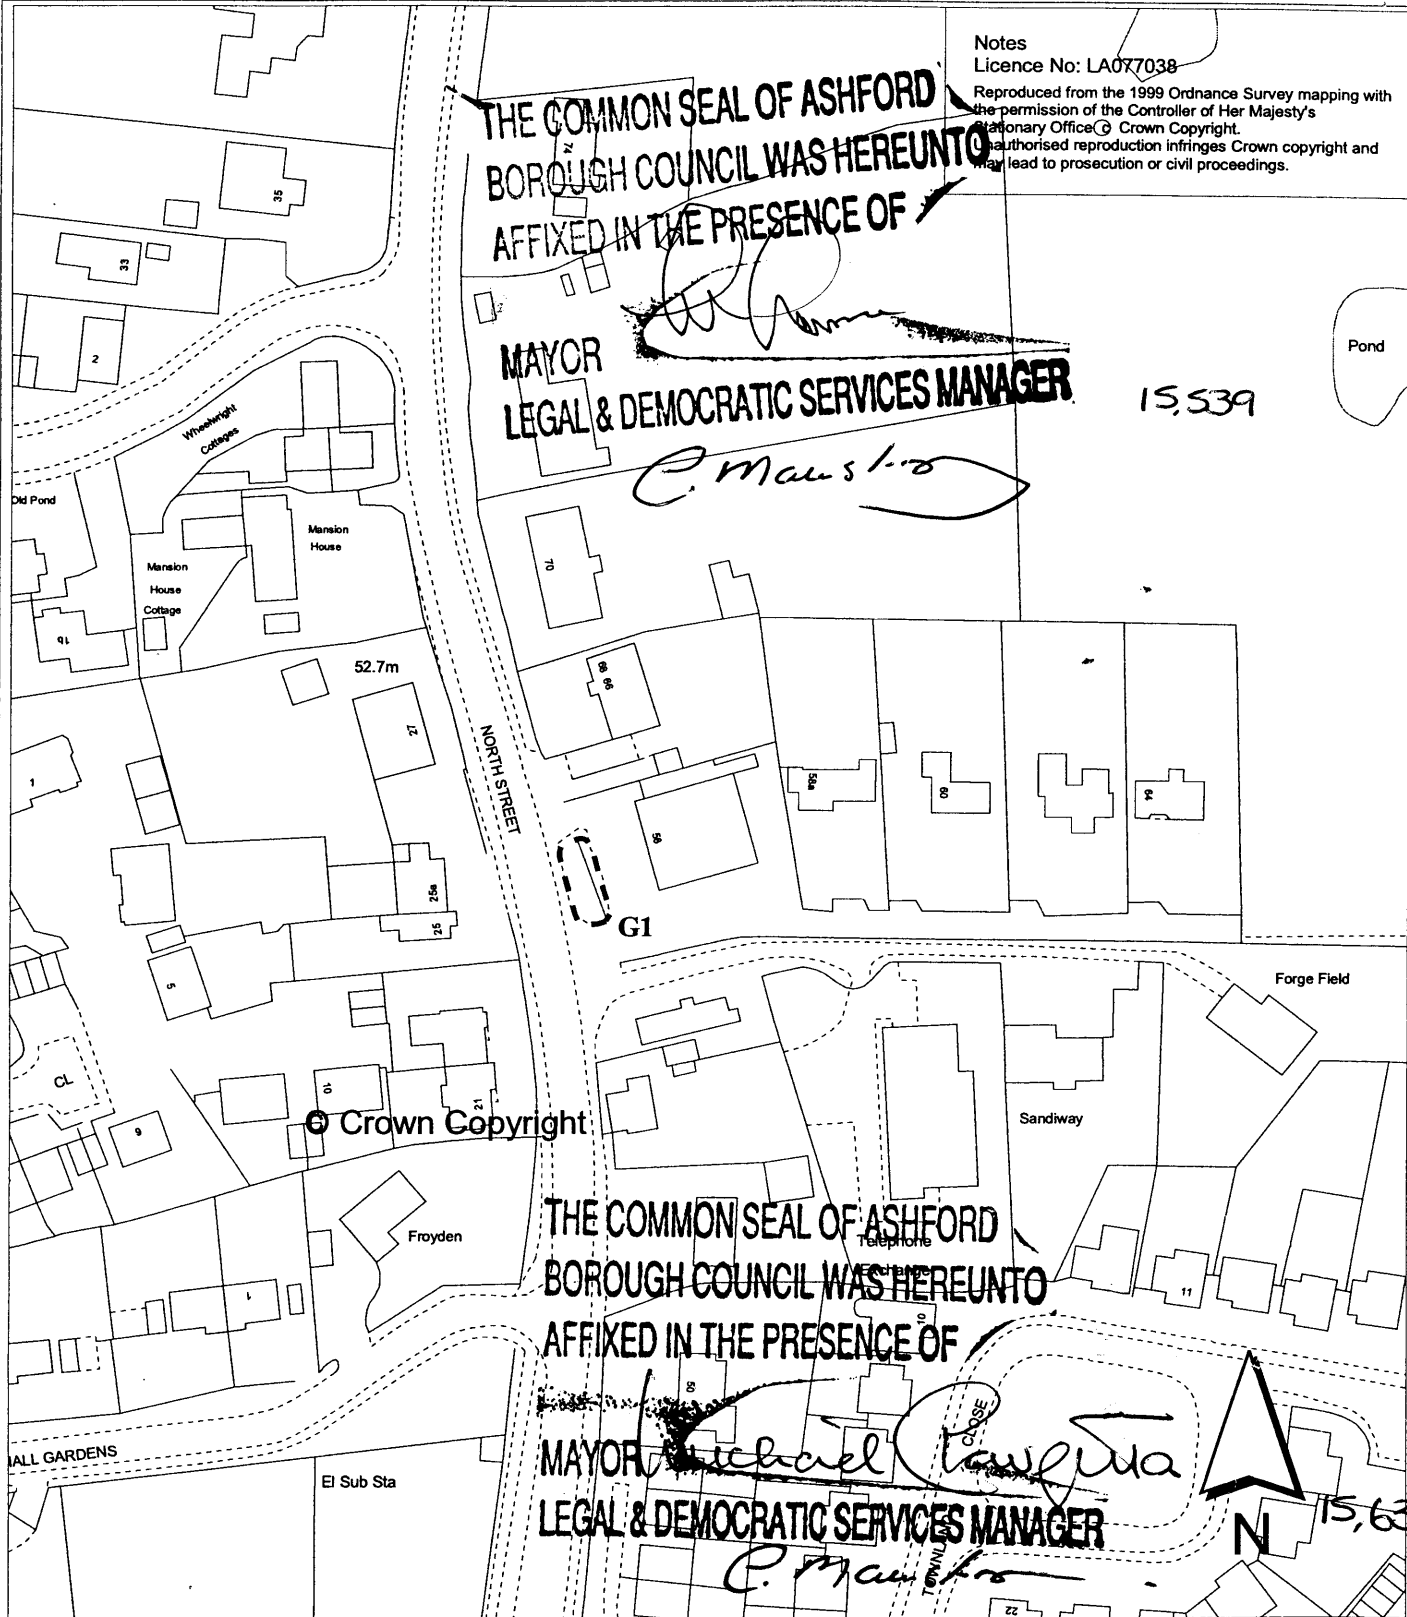 Notes
Licence No: LA077038
Reproduced from the 1999 Ordnance Survey mapping with
the permission of the Controller of Her Majesty's
Stationary Office © Crown Copyright.
Unauthorised reproduction infringes Crown copyright and
may lead to prosecution or civil proceedings.
THE COMMON SEAL OF ASHFORD
BOROUGH COUNCIL WAS HEREUNTO
AFFIXED IN THE PRESENCE OF
MAYOR
LEGAL & DEMOCRATIC SERVICES MANAGER
15,539
74
35
33
2
Pond
Wheelwright
Cottages
Old Pond
Mansion
House
Mansion
House
Cottage
1b
70
68 66
52.7m
27
NORTH STREET
1
58a
60
64
56
25a
25
G1
5
Forge Field
CL
10
21
9
© Crown Copyright
Sandiway
Froyden
THE COMMON SEAL OF ASHFORD
Telephone
Exchange
BOROUGH COUNCIL WAS HEREUNTO
AFFIXED IN THE PRESENCE OF
10
11
1
50
CLOSE
MAYOR
Michael
LEGAL & DEMOCRATIC SERVICES MANAGER
HALL GARDENS
El Sub Sta
N
15,63
22